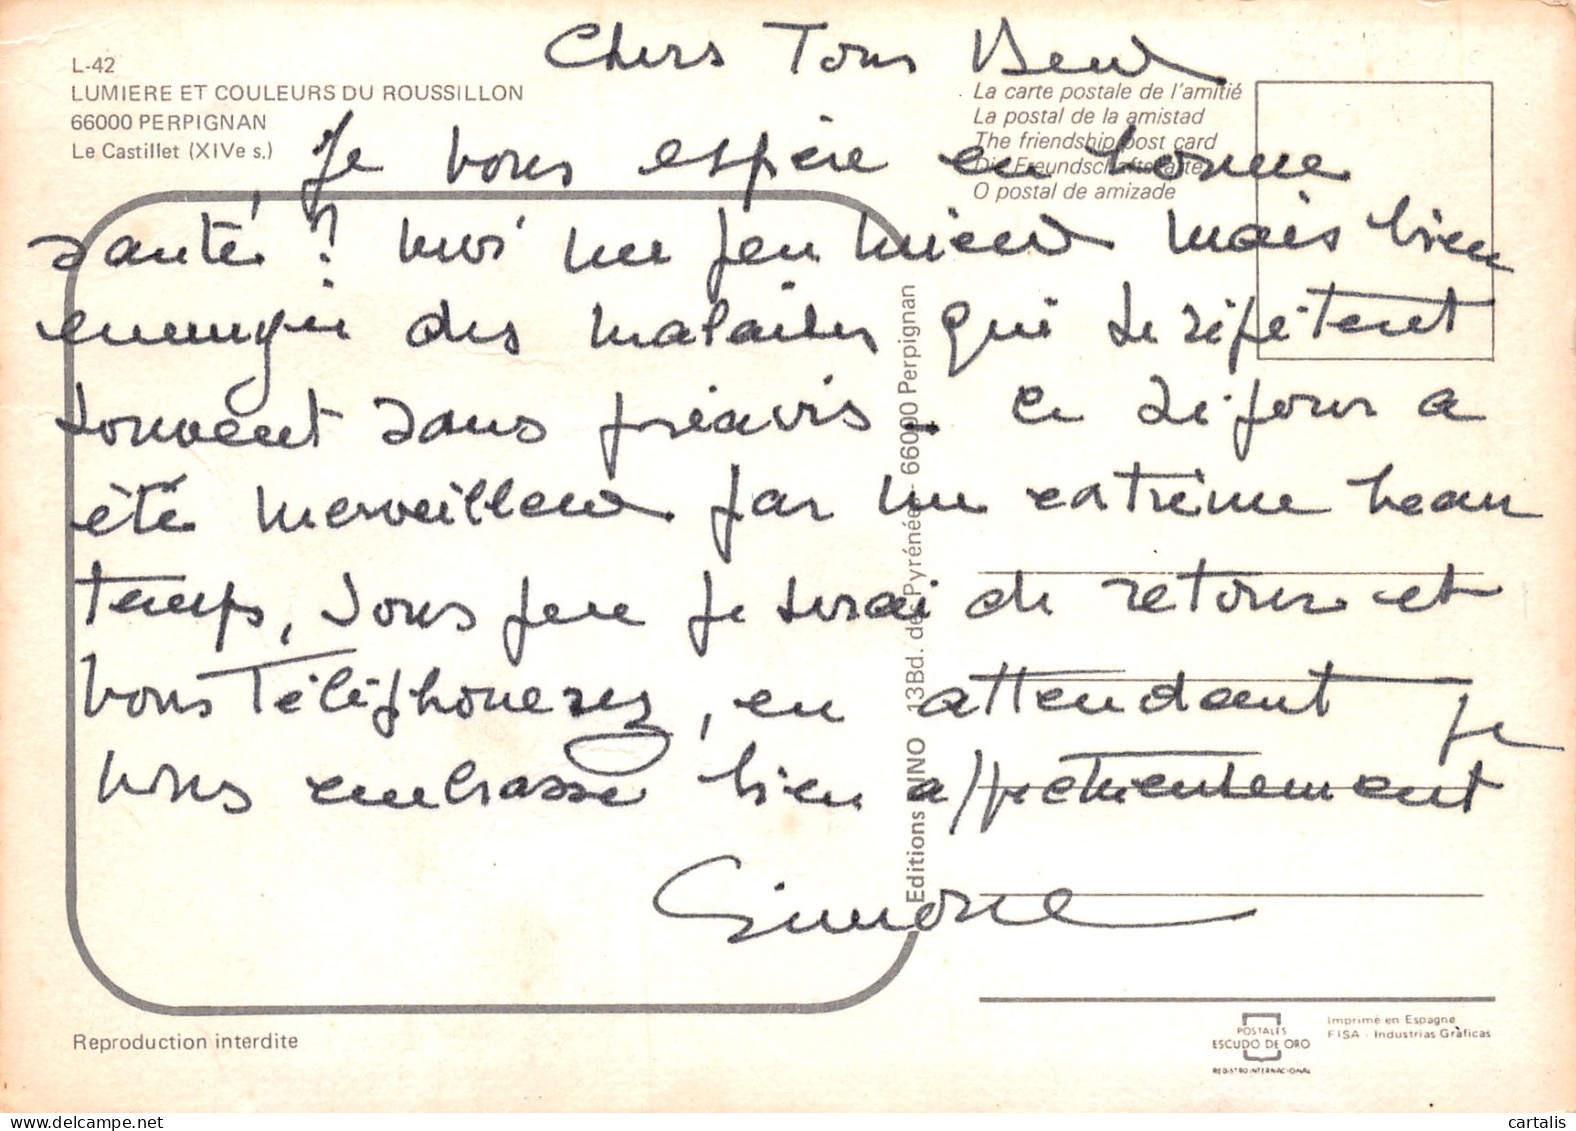 Chers Tous Deux
L-42
LUMIERE ET COULEURS DU ROUSSILLON
66000 PERPIGNAN
Le Castillet (XIVe s.)
La carte postale de l'amitié
La postal de la amistad
The friendship post card
Die Freundschaftskarte
O postal de amizade
Je vous espère en bonne
santé? moi un peu mieux mais bien
ennuyée des malaises qui se répètent
souvent sans préavis - Ce séjour a
été merveilleux par un extrême beau
temps, sous peu je serai de retour et
vous téléphonerez, en attendant je
vous embrasse bien affectueusement
Simone
Editions 13 Bd. des Pyrénées - 66000 Perpignan
Reproduction interdite
POSTALES
ESCUDO DE ORO
REGISTRO INTERNACIONAL
Imprimé en Espagne
FISA - Industrias Gráficas
cartalis